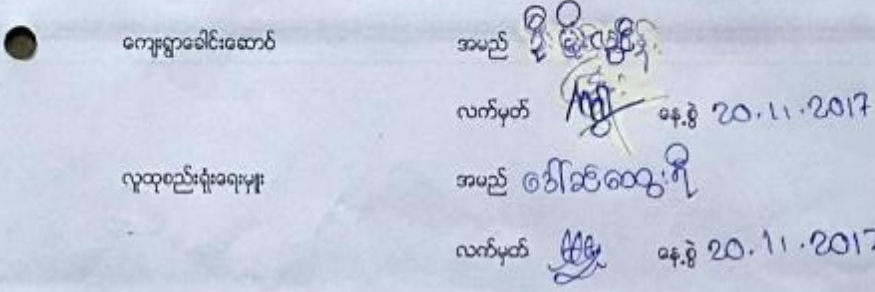 ကျေးရွာခေါင်းဆောင် အမည် ဦး
လက်မှတ် နေ့စွဲ 20.11.2017
လူထုစည်းရုံးရေးမှူး အမည် ဒေါ်ဆိထွေးရီ
လက်မှတ် နေ့စွဲ 20.11.2017